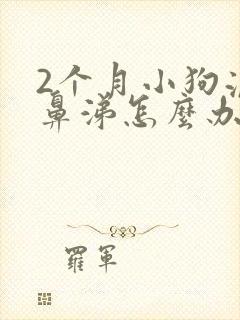 2个月小狗流
鼻涕怎麼办
羅軍